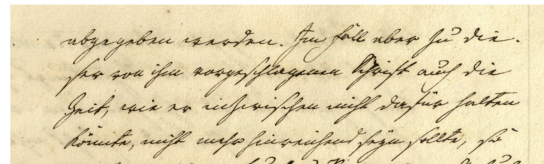 abgegeben werden. Im Fall aber zu die-
ser von ihm vorgeschlagenen Schrift auch die
Zeit, wie er inzwischen nicht dafür halten
könnte, nicht mehr hinreichend seÿn sollte, so